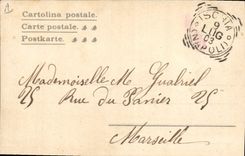 Cartolina postale.
Carte postale.
Postkarte.
ISCHIA
9
LUG
03
NAPOLI
Mademoiselle M. Guabriel
25 Rue du Panier 25
Marseille